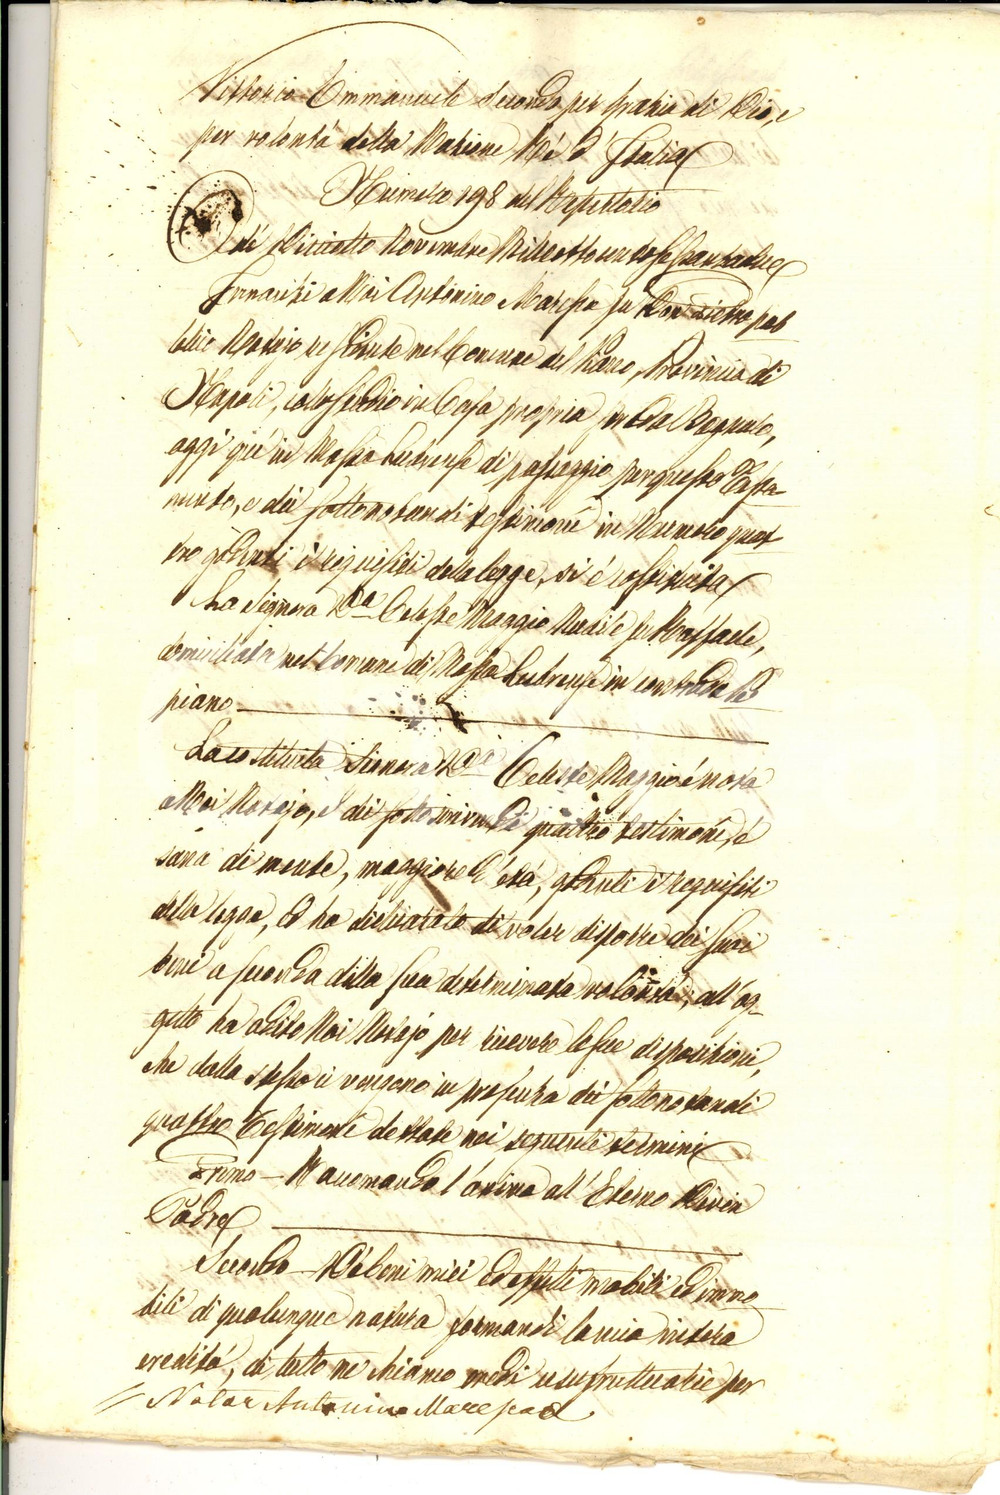 Vittorio Emmanuele Secondo per grazia di Dio, e
per volontà della Nazione Rè d'Italia
Numero 198 del Repertorio
Lì Diciotto Novembre Milleottocentosessantadue
Innanzi a Noi Antonino Maresca fu Don Pietro pub
blico Notajo residente nel Comune del Piano, Provincia di
Napoli, collo studio in Casa propria strada Bagnulo,
oggi qui in Massa Lubrense di passaggio per questo Testa-
mento, e dei sottonotandi testimonî in Numero quat
tro godenti i requisiti della legge, si è costituita
La Signora D.a Celeste Maggio Nubile fu Raffaele,
domiciliata nel Comune di Massa Lubrense in contrada
piano
La costituita Signora D.a Celeste Maggio è nota
a Noi Notajo, e dei sottoscrivendi quattro testimonî, è
sana di mente, maggiore d'età, godenti i requisiti
della legge, ed ha dichiarato di voler disporre dei suoi
beni a seconda della sua determinata volontà, all'og-
getto ha adito Noi Notajo per ricevere le sue disposizioni,
che dalla stessa ci vengono in presenza dei sottonotandi
quattro Testimonî dettate nei seguenti termini
Primo - Raccomando l'anima all'Eterno Divin
Padre
Secondo - De' beni miei ed effetti mobili ed immo
bili di qualunque natura formandi la mia intera
eredità, di tutto ne chiamo eredi usufruttuatie per
Notar Antonino Maresca